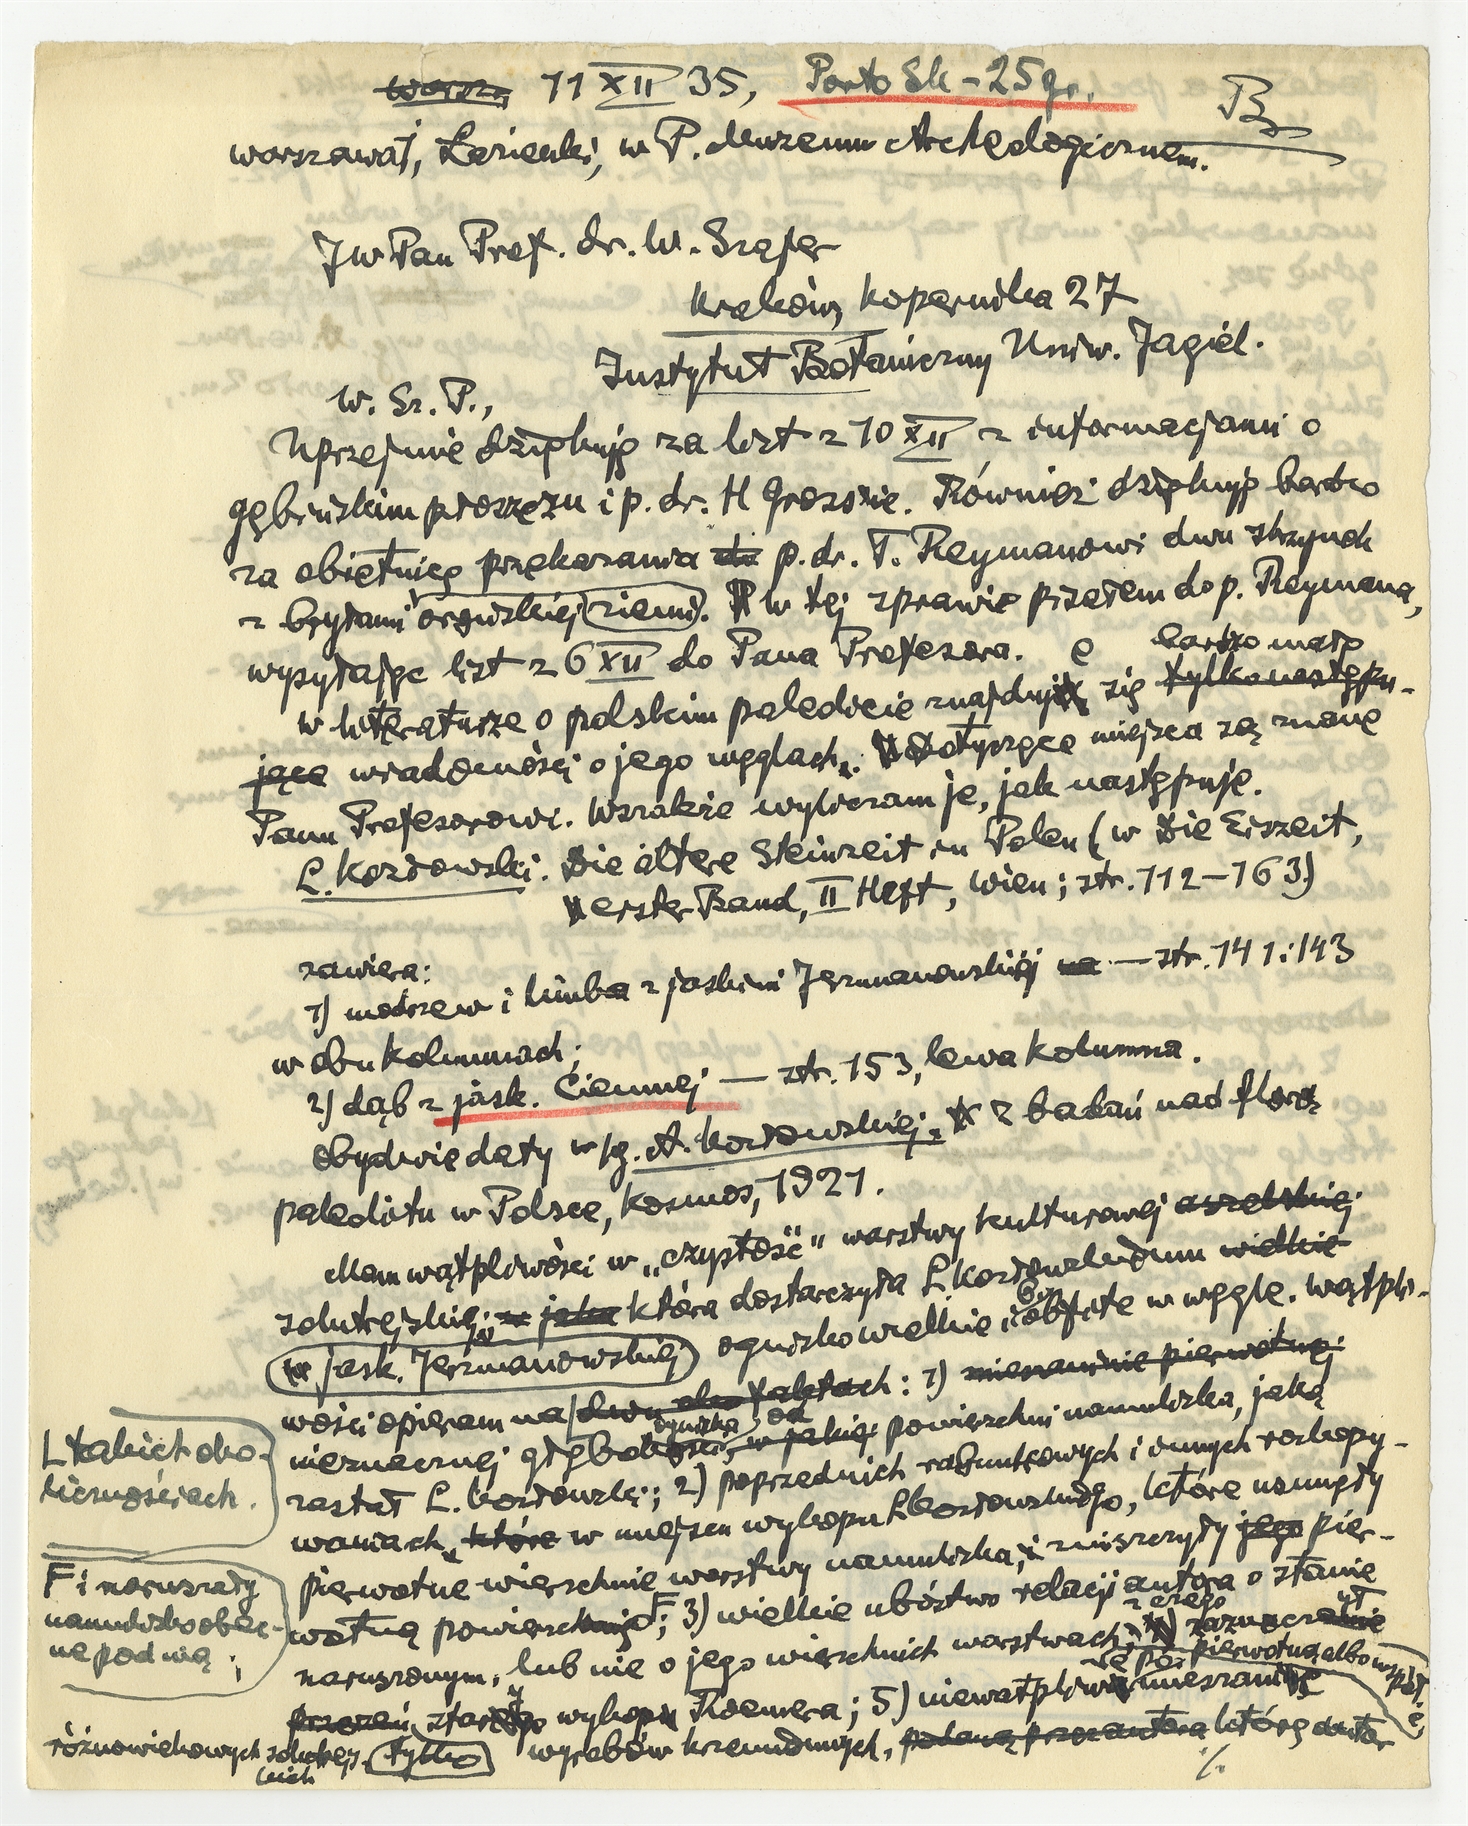 11 XII 35, Porto Sk - 25 gr.
Warszawa, Łazienki, w P. Muzeum Archeologicznem.
JW Pan Prof. dr. W. Szafer
Kraków, Kopernika 27
Instytut Botaniczny Uniw. Jagiel.
W. Sz. P.,
Uprzejmie dziękuję za list z 10 XII z informacjami o
gębińskim proszczu i p. dr. H Grossie. Również dziękuję bardzo
za obietnicę przekazania p. dr. T. Reymanowi dwu skrzynek
z bryłami orgwskiej ziemi. W tej sprawie pisałem do p. Reymana,
wysyłając list z 6 XII do Pana Profesora.
W literaturze o polskim paleolicie znajduje się bardzo mało tylko następu-
jące wiadomości o jego węglach. Dotyczące miejsca są znane
Panu Profesorowi. Wszakże wyliczam je, jak następuje.
L. Kozłowski. Die ältere Steinzeit in Polen (w Die Eiszeit,
erster Band, II Heft, Wien; str. 112-163)
zawiera:
1) modrzew i limba z jaskini Jerzmanowskiej — str. 141 i 143
w obu kolumnach;
2) dąb z jask. Ciemnej — str. 153, lewa kolumna.
Obydwie daty wg. A. Kozłowskiej. Z badań nad florą
paleolitu w Polsce, Kosmos, 1921.
Mam wątpliwości w „czystość" warstwy kulturowej
solutrejskiej, która dostarczyła L. Kozłowskiemu wielkie
w jask. Jerzmanowskiej ognisko wielkie i obfite w węgle. Wątpli-
wości opieram na dwu faktach: 1)
nieznacznej głębokości ogniska od powierzchni namuliska, jaką
zastał L. Kozłowski; 2) poprzednich rabunkowych i innych rozkopy-
waniach, które w miejscu wykopu L. Kozłowskiego, które usunęły
pierwotne wierzchnie warstwy namuliska, i zniszczyły jego pier-
wotną powierzchnię F; 3) wielkie ubóstwo relacji autora o stanie
naruszonym, lub nie o jego wierzchnich warstwach;
wykopu Roemera; 5) niewątpliwe mieszanie
różnowiekowych tylko wyrobów krzemiennych, podaną przez autora które autor
L takich oko-
licznościach.
F i naruszały
namulisko obec-
ne pod nią;
./.